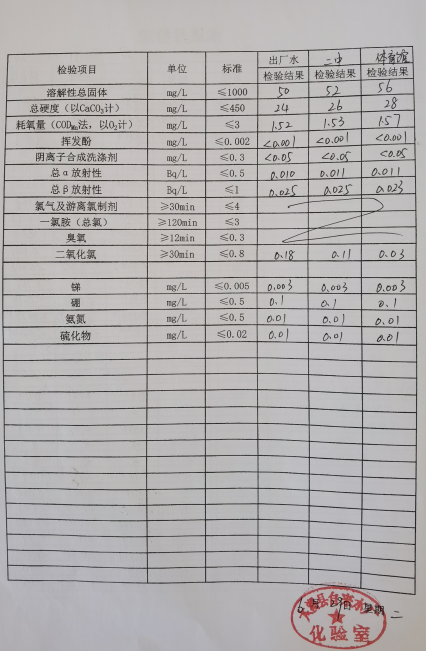 出厂水 二中 体育馆
检验项目 单位 标准 检验结果 检验结果 检验结果
溶解性总固体 mg/L ≤1000 50 52 56
总硬度（以CaCO₃计） mg/L ≤450 24 26 28
耗氧量（CODMn法，以O₂计） mg/L ≤3 1.52 1.53 1.57
挥发酚 mg/L ≤0.002 <0.001 <0.001 <0.001
阴离子合成洗涤剂 mg/L ≤0.3 <0.05 <0.05 <0.05
总α放射性 Bq/L ≤0.5 0.010 0.011 0.011
总β放射性 Bq/L ≤1 0.025 0.025 0.023
氯气及游离氯制剂 ≥30min ≤4
一氯胺（总氯） ≥120min ≤3
臭氧 ≥12min ≤0.3
二氧化氯 ≥30min ≤0.8 0.18 0.11 0.03
锑 mg/L ≤0.005 0.003 0.003 0.003
硼 mg/L ≤0.5 0.1 0.1 0.1
氨氮 mg/L ≤0.5 0.01 0.01 0.01
硫化物 mg/L ≤0.02 0.01 0.01 0.01
星期 二
化验室